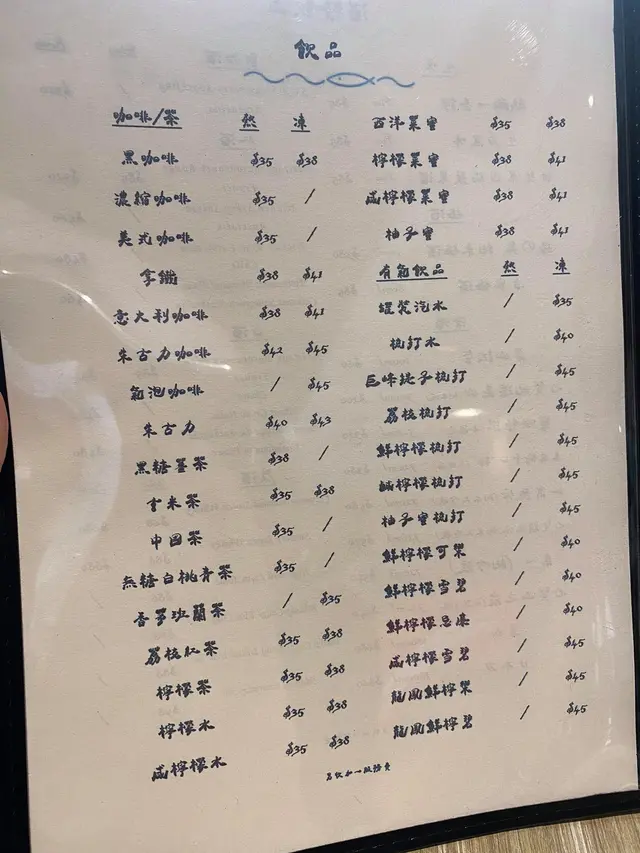 飲品
咖啡/茶 熱 凍
黑咖啡 $35 $38
濃縮咖啡 $35 /
美式咖啡 $35 /
拿鐵 $38 $41
意大利咖啡 $38 $41
朱古力咖啡 $42 $45
氣泡咖啡 / $45
朱古力 $40 $43
黑糖薑茶 $38 /
玄米茶 $35 $38
中国茶 $35 /
無糖白桃青茶 $35 /
香茅班蘭茶 / $35
荔枝紅茶 $35 $38
檸檬茶 $35 $38
檸檬水 $35 $38
咸檸檬水 $35 $38
西洋菜蜜 $35 $38
檸檬菜蜜 $38 $41
咸檸檬菜蜜 $38 $41
柚子蜜 $38 $41
有氣飲品 熱 凍
罐裝汽水 / $35
梳打水 / $40
巨峰提子梳打 / $45
荔枝梳打 / $45
鮮檸檬梳打 / $45
鹹檸檬梳打 / $45
柚子蜜梳打 / $45
鮮檸檬可樂 / $40
鮮檸檬雪碧 / $40
鮮檸檬忌廉 / $40
咸檸檬雪碧 / $45
龍鳳鮮檸樂 / $45
龍鳳鮮檸碧 / $45
另收加一服務費